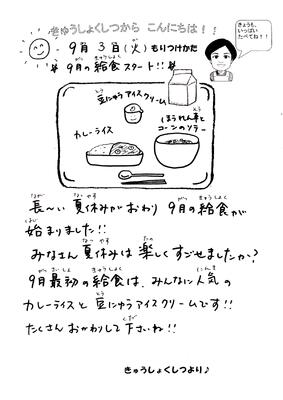 きゅうしょくしつから こんにちは！！
きょうも、
いっぱい
たべてね！！
9月 3日(火)もりつけかた
9月の給食スタート!!
豆にゅうアイスクリーム
カレーライス
ほうれん草と
コーンのソテー
長〜い 夏休みがおわり 9月の給食が
始まりました!!
みなさん 夏休みは 楽しく すごせましたか?
9月最初の給食は、みんなに人気の
カレーライスと 豆にゅうアイスクリームです!!
たくさん おかわりして 下さいね!!
きゅうしょくしつより♪